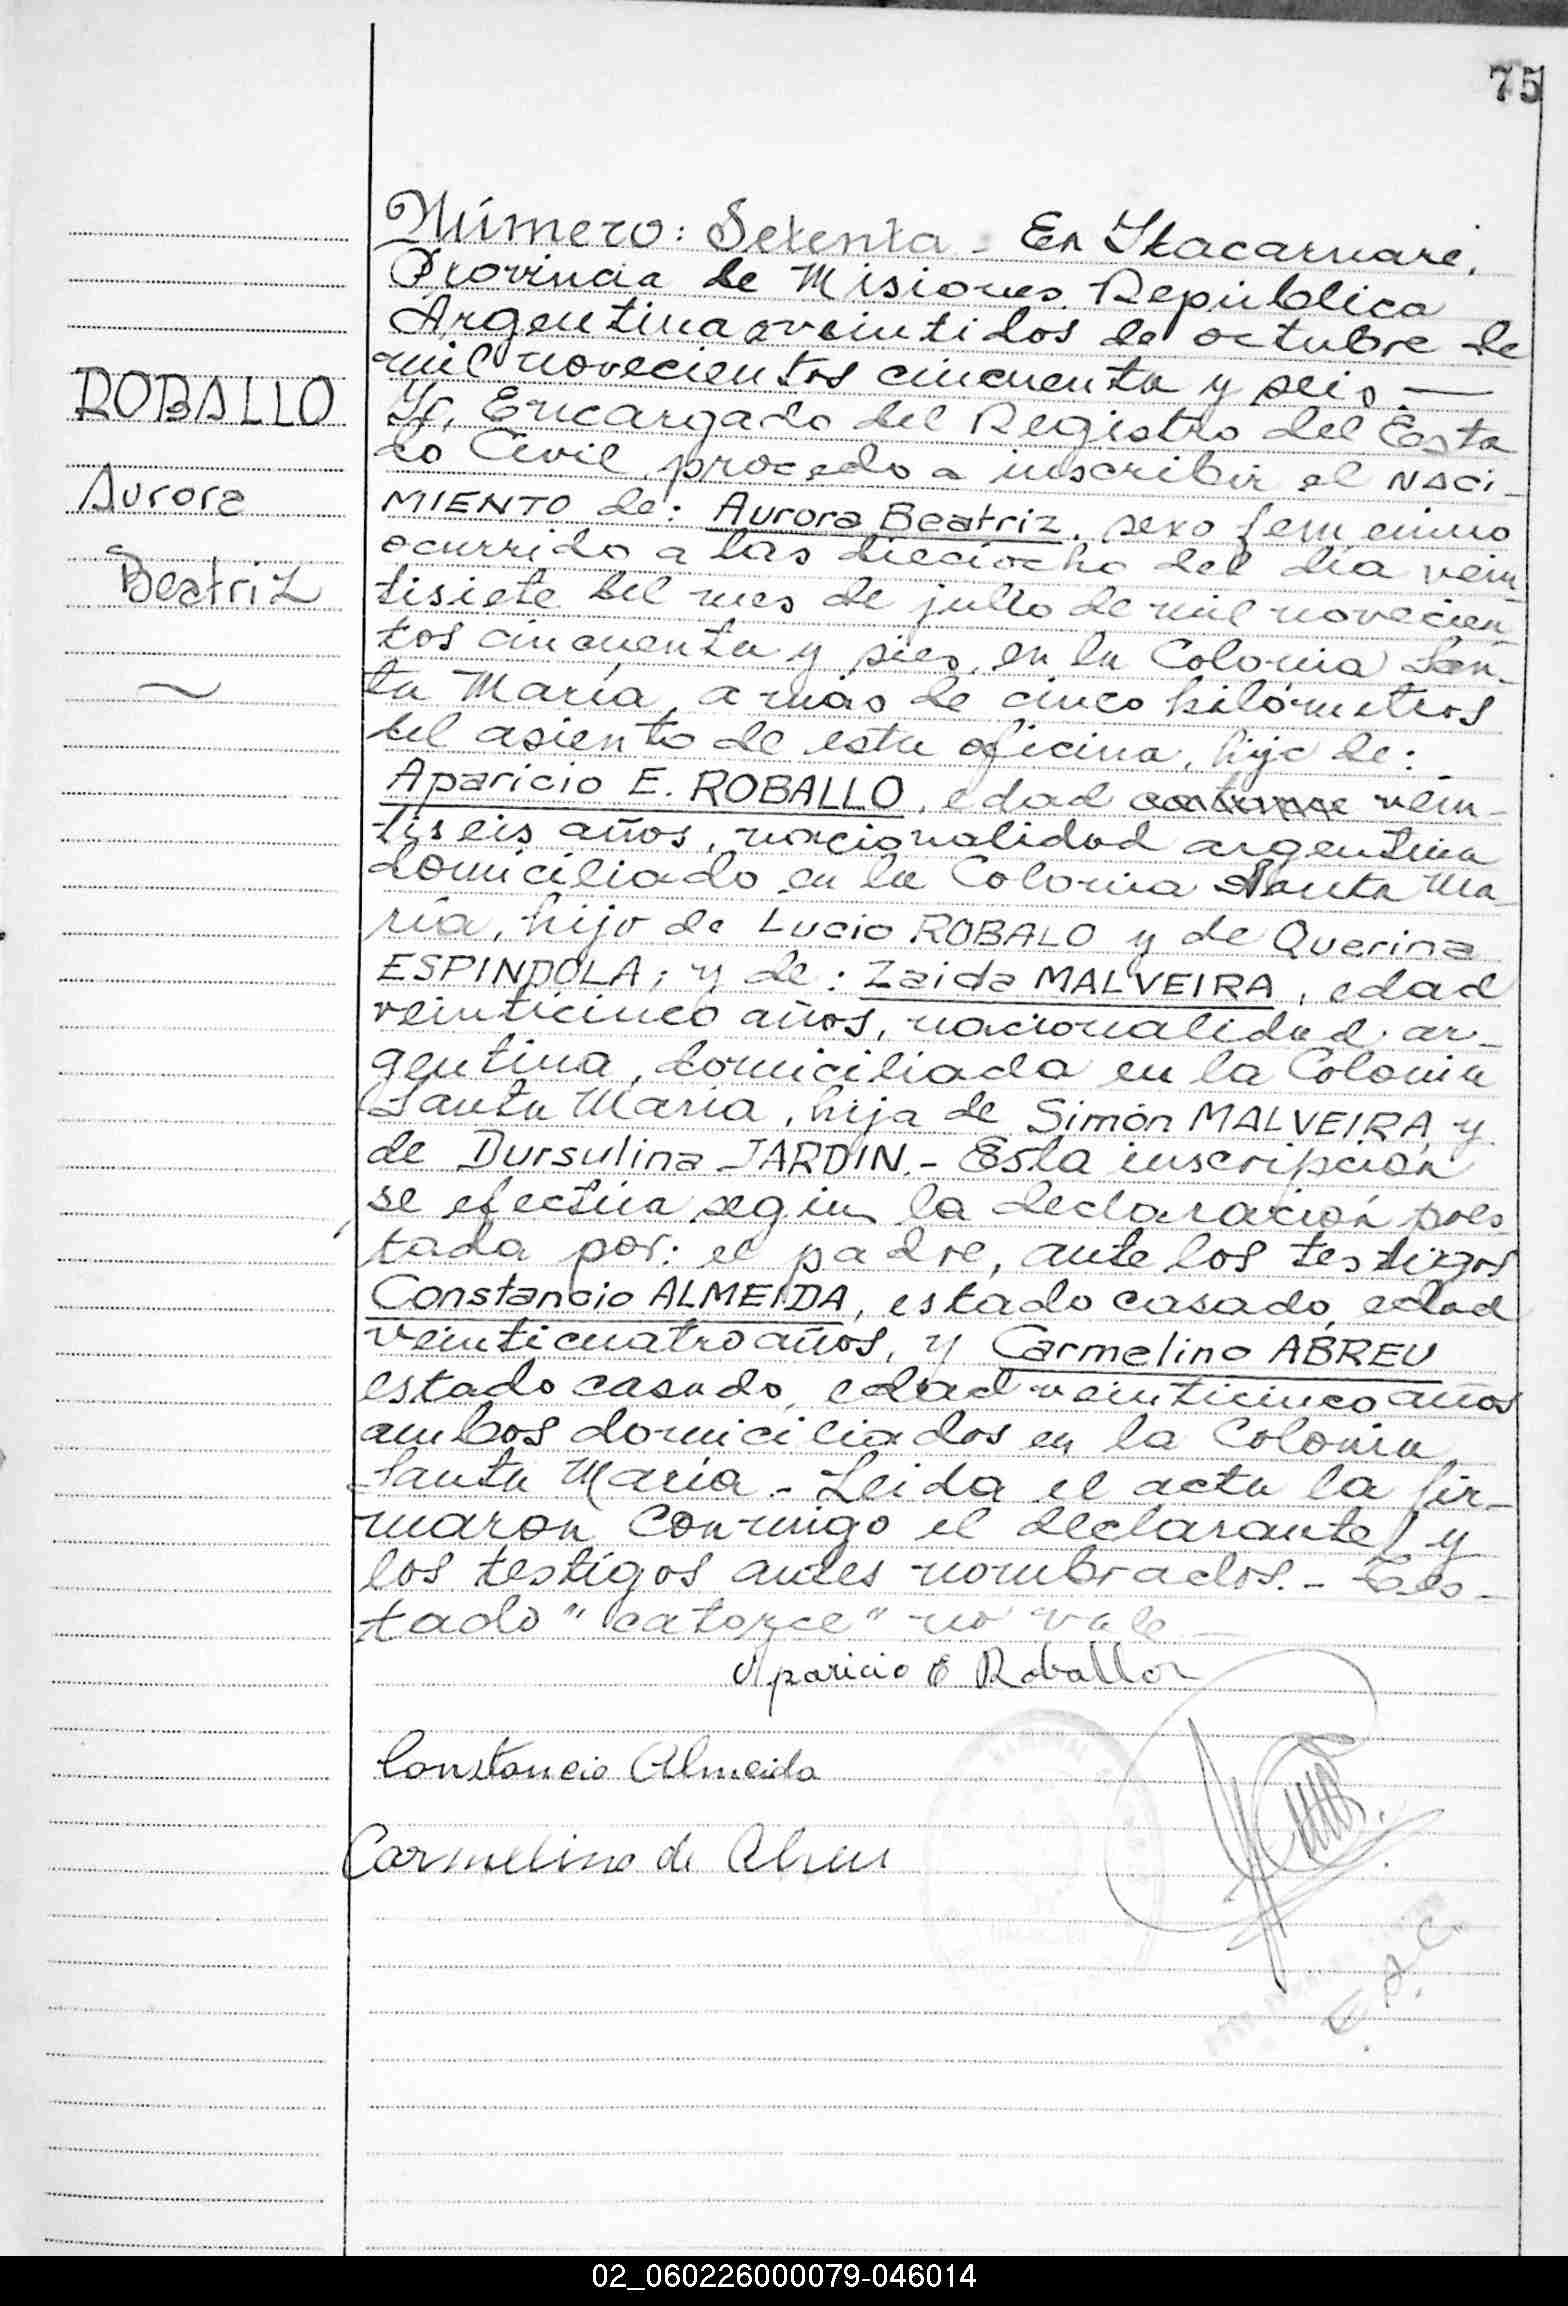 75
Número: Setenta - En Itacaruaré,
Provincia de Misiones, República
Argentina a veintidos de octubre de
mil novecientos cincuenta y seis —
Yo, Encargado del Registro del Esta
do Civil, procedo a inscribir el NACI-
MIENTO de: Aurora Beatriz, sexo femenino
ocurrido a las dieciocho del día vein-
tisiete del mes de julio de mil novecien-
tos cincuenta y sies, en la Colonia San-
ta María, a más de cinco kilómetros
del asiento de esta oficina, hija de:
Aparicio E. ROBALLO, edad catorce vein-
tiseis años, nacionalidad argentina
domiciliado en la Colonia Santa Ma-
ría, hijo de Lucio ROBALO y de Querina
ESPINDOLA; y de: Zaida MALVEIRA, edad
veinticinco años, nacionalidad ar-
gentina, domiciliada en la Colonia
Santa María, hija de Simón MALVEIRA y
de Dursulina JARDIN.- Esta inscripción
se efectúa según la declaración pres
tada por: el padre, ante los testigos
Constancio ALMEIDA, estado casado, edad
veinticuatro años, y Carmelino ABREU
estado casado, edad veinticinco años
ambos domiciliados en la Colonia
Santa María.- Leida el acta la fir-
maron conmigo el declarante y
los testigos antes nombrados.- Tes-
tado "catorce" no vale —
ROBALLO
Aurora
Beatriz
Aparicio E Roballo
Constancio Almeida
Carmelino de Abreu
02_060226000079-046014